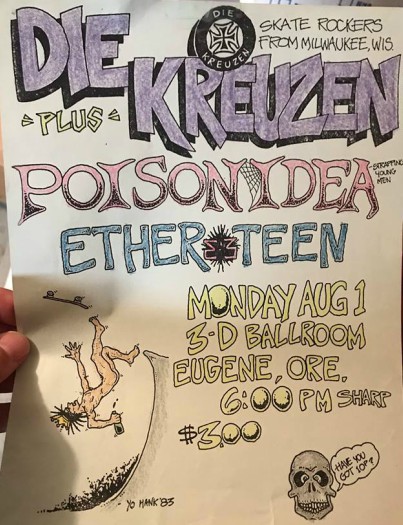 DIE KREUZEN
DIE
KREUZEN
SKATE ROCKERS
FROM MILWAUKEE, WIS.
PLUS
POISON IDEA
STRAPPING
YOUNG
MEN
ETHER TEEN
MONDAY AUG 1
3-D BALLROOM
EUGENE, ORE.
6:00 PM SHARP
$3.00
HAVE YOU
GOT 10P?
YO HANK '83